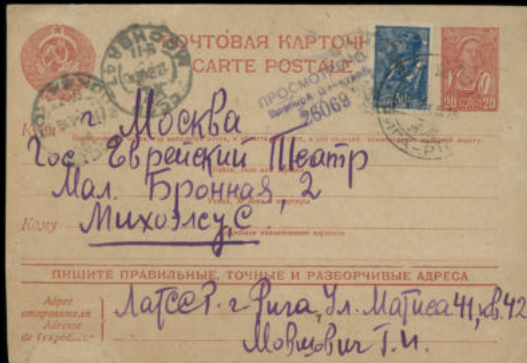 ПОЧТОВАЯ КАРТОЧКА
CARTE POSTALE
ПРОСМОТРЕНО
26069
20 20
МОСКВА
Куда
г. Москва
Гос. Еврейский Театр
Мал. Бронная, 2
Кому
Михоэлсу С.
ПИШИТЕ ПРАВИЛЬНЫЕ, ТОЧНЫЕ И РАЗБОРЧИВЫЕ АДРЕСА
Адрес
отправителя
Adresse
de l'expéditeur
ЛатССР. г. Рига, Ул. Матиса 41, кв. 42
Мовшович Г. И.